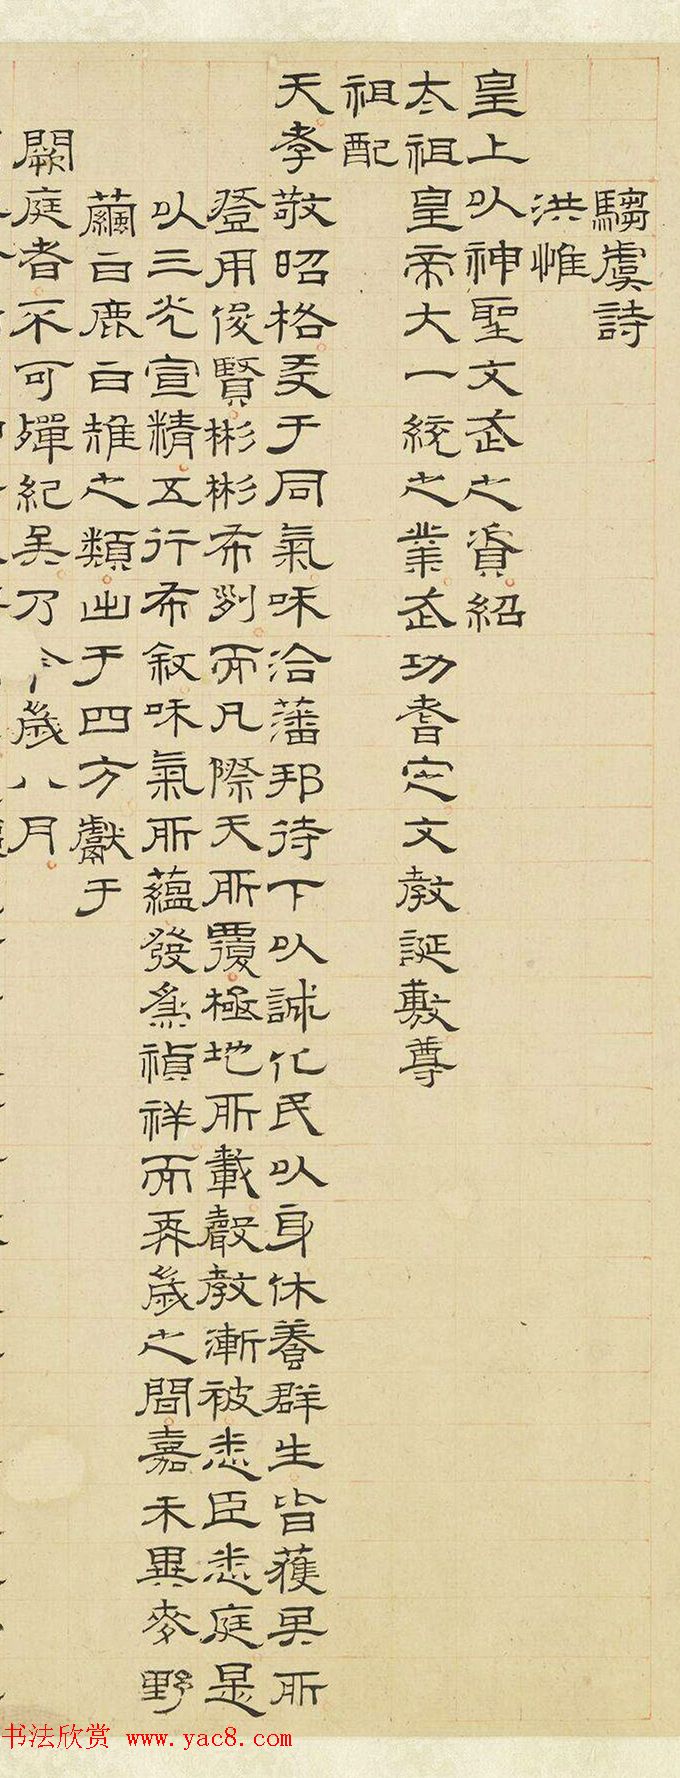 騶虞詩
洪惟
皇上以神聖文武之資紹
太祖皇帝大一統之業武功耆定文教誕敷尊
祖配
天孝敬昭格友于同氣咊洽藩邦待下以誠化民以身休養群生皆獲其所
登用俊賢彬彬布列而凡際天所覆極地所載聲教漸被悉臣悉庭是
以三光宣精五行布敘咊氣所蘊發為禎祥而再歲之間嘉禾異麥野
繭白鹿白雉之類出于四方獻于
闕庭者不可殫紀矣乃今歲八月
书法欣赏 www.yac8.com